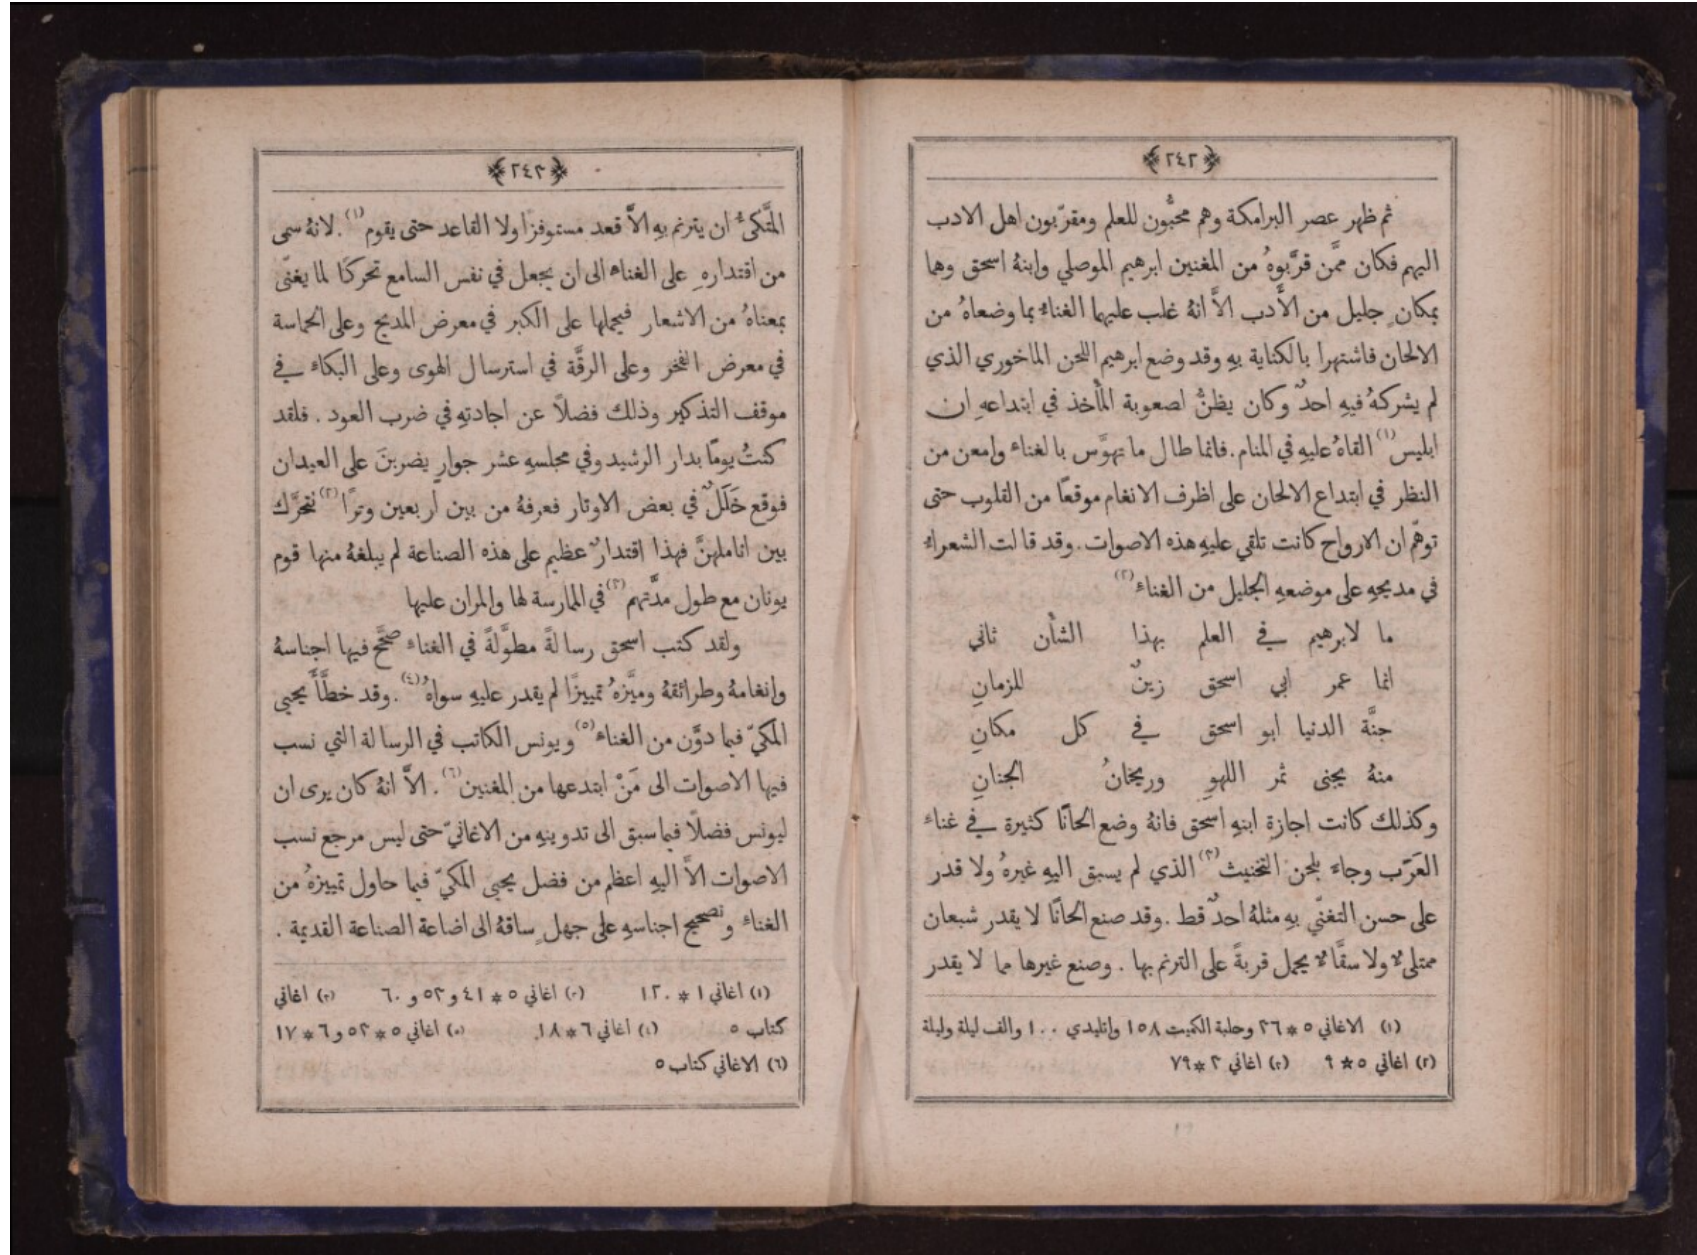 ﴿٢٤٢﴾
ثم ظهر عصر البرامكة وهم محبُّون للعلم ومقرّبون اهل الادب
اليهم فكان ممَّن قرَّبوهُ من المغنين ابرهيم الموصلي وابنهُ اسحق وهما
بمكانٍ جليل من الأَدب الاَّ انهُ غلب عليهما الغناءُ بما وضعاهُ من
الالحان فاشتهرا بالكناية بهِ وقد وضع ابرهيم اللحن الماخوري الذي
لم يشركهُ فيهِ احدٌ وكان يظنُّ لصعوبة المأخذ في ابتداعهِ ان
ابليس (١) القاهُ عليهِ في المنام. فانما طال ما تهوَّس بالغناء وامعن من
النظر في ابتداع الالحان على اظرف الانغام موقعًا من القلوب حتى
توهَّم ان الارواح كانت تلقي عليهِ هذه الاصوات. وقد قالت الشعراءُ
في مديحهِ على موضعهِ الجليل من الغناء (٢)
ما لابرهيم في العلم بهذا الشأن ثاني
انما عمر ابي اسحق زينٌ للزمانِ
جنَّة الدنيا ابو اسحق في كل مكانِ
منهُ يجنى ثمر اللهوِ وريحانُ الجنانِ
وكذلك كانت اجازة ابنهِ اسحق فانهُ وضع الحانًا كثيرة في غناء
العَرَب وجاء بلحن التخنيث (٣) الذي لم يسبق اليهِ غيرهُ ولا قدر
على حسن التغنّي بهِ مثلهُ احدٌ قط. وقد صنع الحانًا لا يقدر شبعان
ممتلئٌ ولا سقَّاءٌ يحمل قربةً على الترنم بها. وصنع غيرها مما لا يقدر
(١) الاغاني ٥*٣٦ وحلبة الكميت ١٥٨ واتليدي ١٠٠ والف ليلة وليلة
(٢) اغاني ٥*٩ (٣) اغاني ٣*٧٩
﴿٢٤٣﴾
المتَّكئُ ان يترنم بهِ الاَّ قعد مستوفزا ولا القاعد حتى يقوم (١). لانهُ سمى
من اقتدارهِ على الغناء الى ان يجعل في نفس السامع تحركًا لما يغنَّى
بمعناهُ من الاشعار فيحملها على الكبر في معرض المديح وعلى الحماسة
في معرض الفخر وعلى الرقَّة في استرسال الهوى وعلى البكاء في
موقف التذكير وذلك فضلاً عن اجادتهِ في ضرب العود. فلقد
كنتُ يومًا بدار الرشيد وفي مجلسهِ عشر جوارٍ يضربنَ على العيدان
فوقع خَلَلٌ في بعض الاوتار فعرفهُ من بين اربعين وترًا (٢) تتحرَّك
بين اناملهنَّ فهذا اقتدارٌ عظيم على هذه الصناعة لم يبلغهُ منها قوم
يونان مع طول مدَّتهم (٣) في الممارسة لها والمران عليها
ولقد كتب اسحق رسالةً مطوَّلةً في الغناء صحَّح فيها اجناسهُ
وانغامهُ وطرائقهُ وميَّزهُ تمييزًا لم يقدر عليهِ سواهُ (٤). وقد خطَّأَ يحيى
المكيّ فيما دوَّن من الغناء (٥) ويونس الكاتب في الرسالة التي نسب
فيها الاصوات الى مَنْ ابتدعها من المغنين (٦). الاَّ انهُ كان يرى ان
ليونس فضلاً فيما سبق الى تدوينهِ من الاغانيّ حتى ليس مرجع نسب
الاصوات الاَّ اليهِ اعظم من فضل يحيى المكيّ فيما حاول تمييزهُ من
الغناء وتصحيح اجناسهِ على جهلٍ ساقهُ الى اضاعة الصناعة القديمة.
(١) اغاني ١*١٢٠ (٢) اغاني ٥*٤١ و٥٣ و٦٠ (٣) اغاني
كتاب ٥ (٤) اغاني ٦*١٨ (٥) اغاني ٥*٥٢ و٦*١٧
(٦) الاغاني كتاب ٥